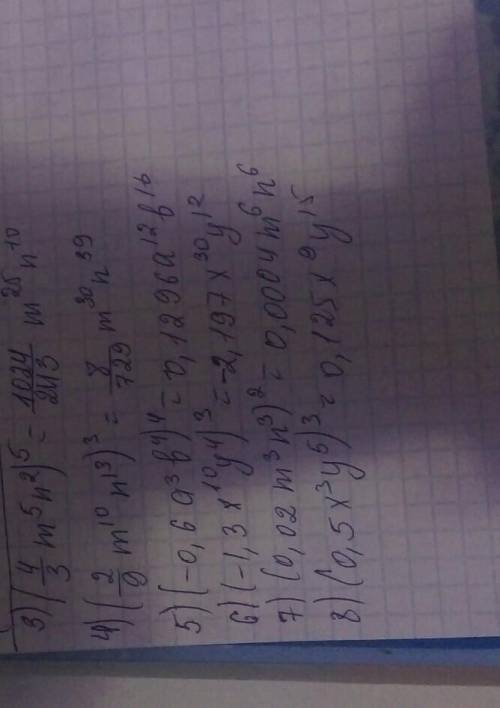 3) (4/3 m⁵n²)⁵ = 1024/243 m²⁵n¹⁰
4) (2/9 m¹⁰n¹³)³ = 8/729 m³⁰n³⁹
5) (-0,6a³b⁴)⁴ = 0,1296a¹²b¹⁶
6) (-1,3x¹⁰y⁴)³ = -2,197x³⁰y¹²
7) (0,02m³n³)² = 0,0004m⁶n⁶
8) (0,5x³y⁵)³ = 0,125x⁹y¹⁵